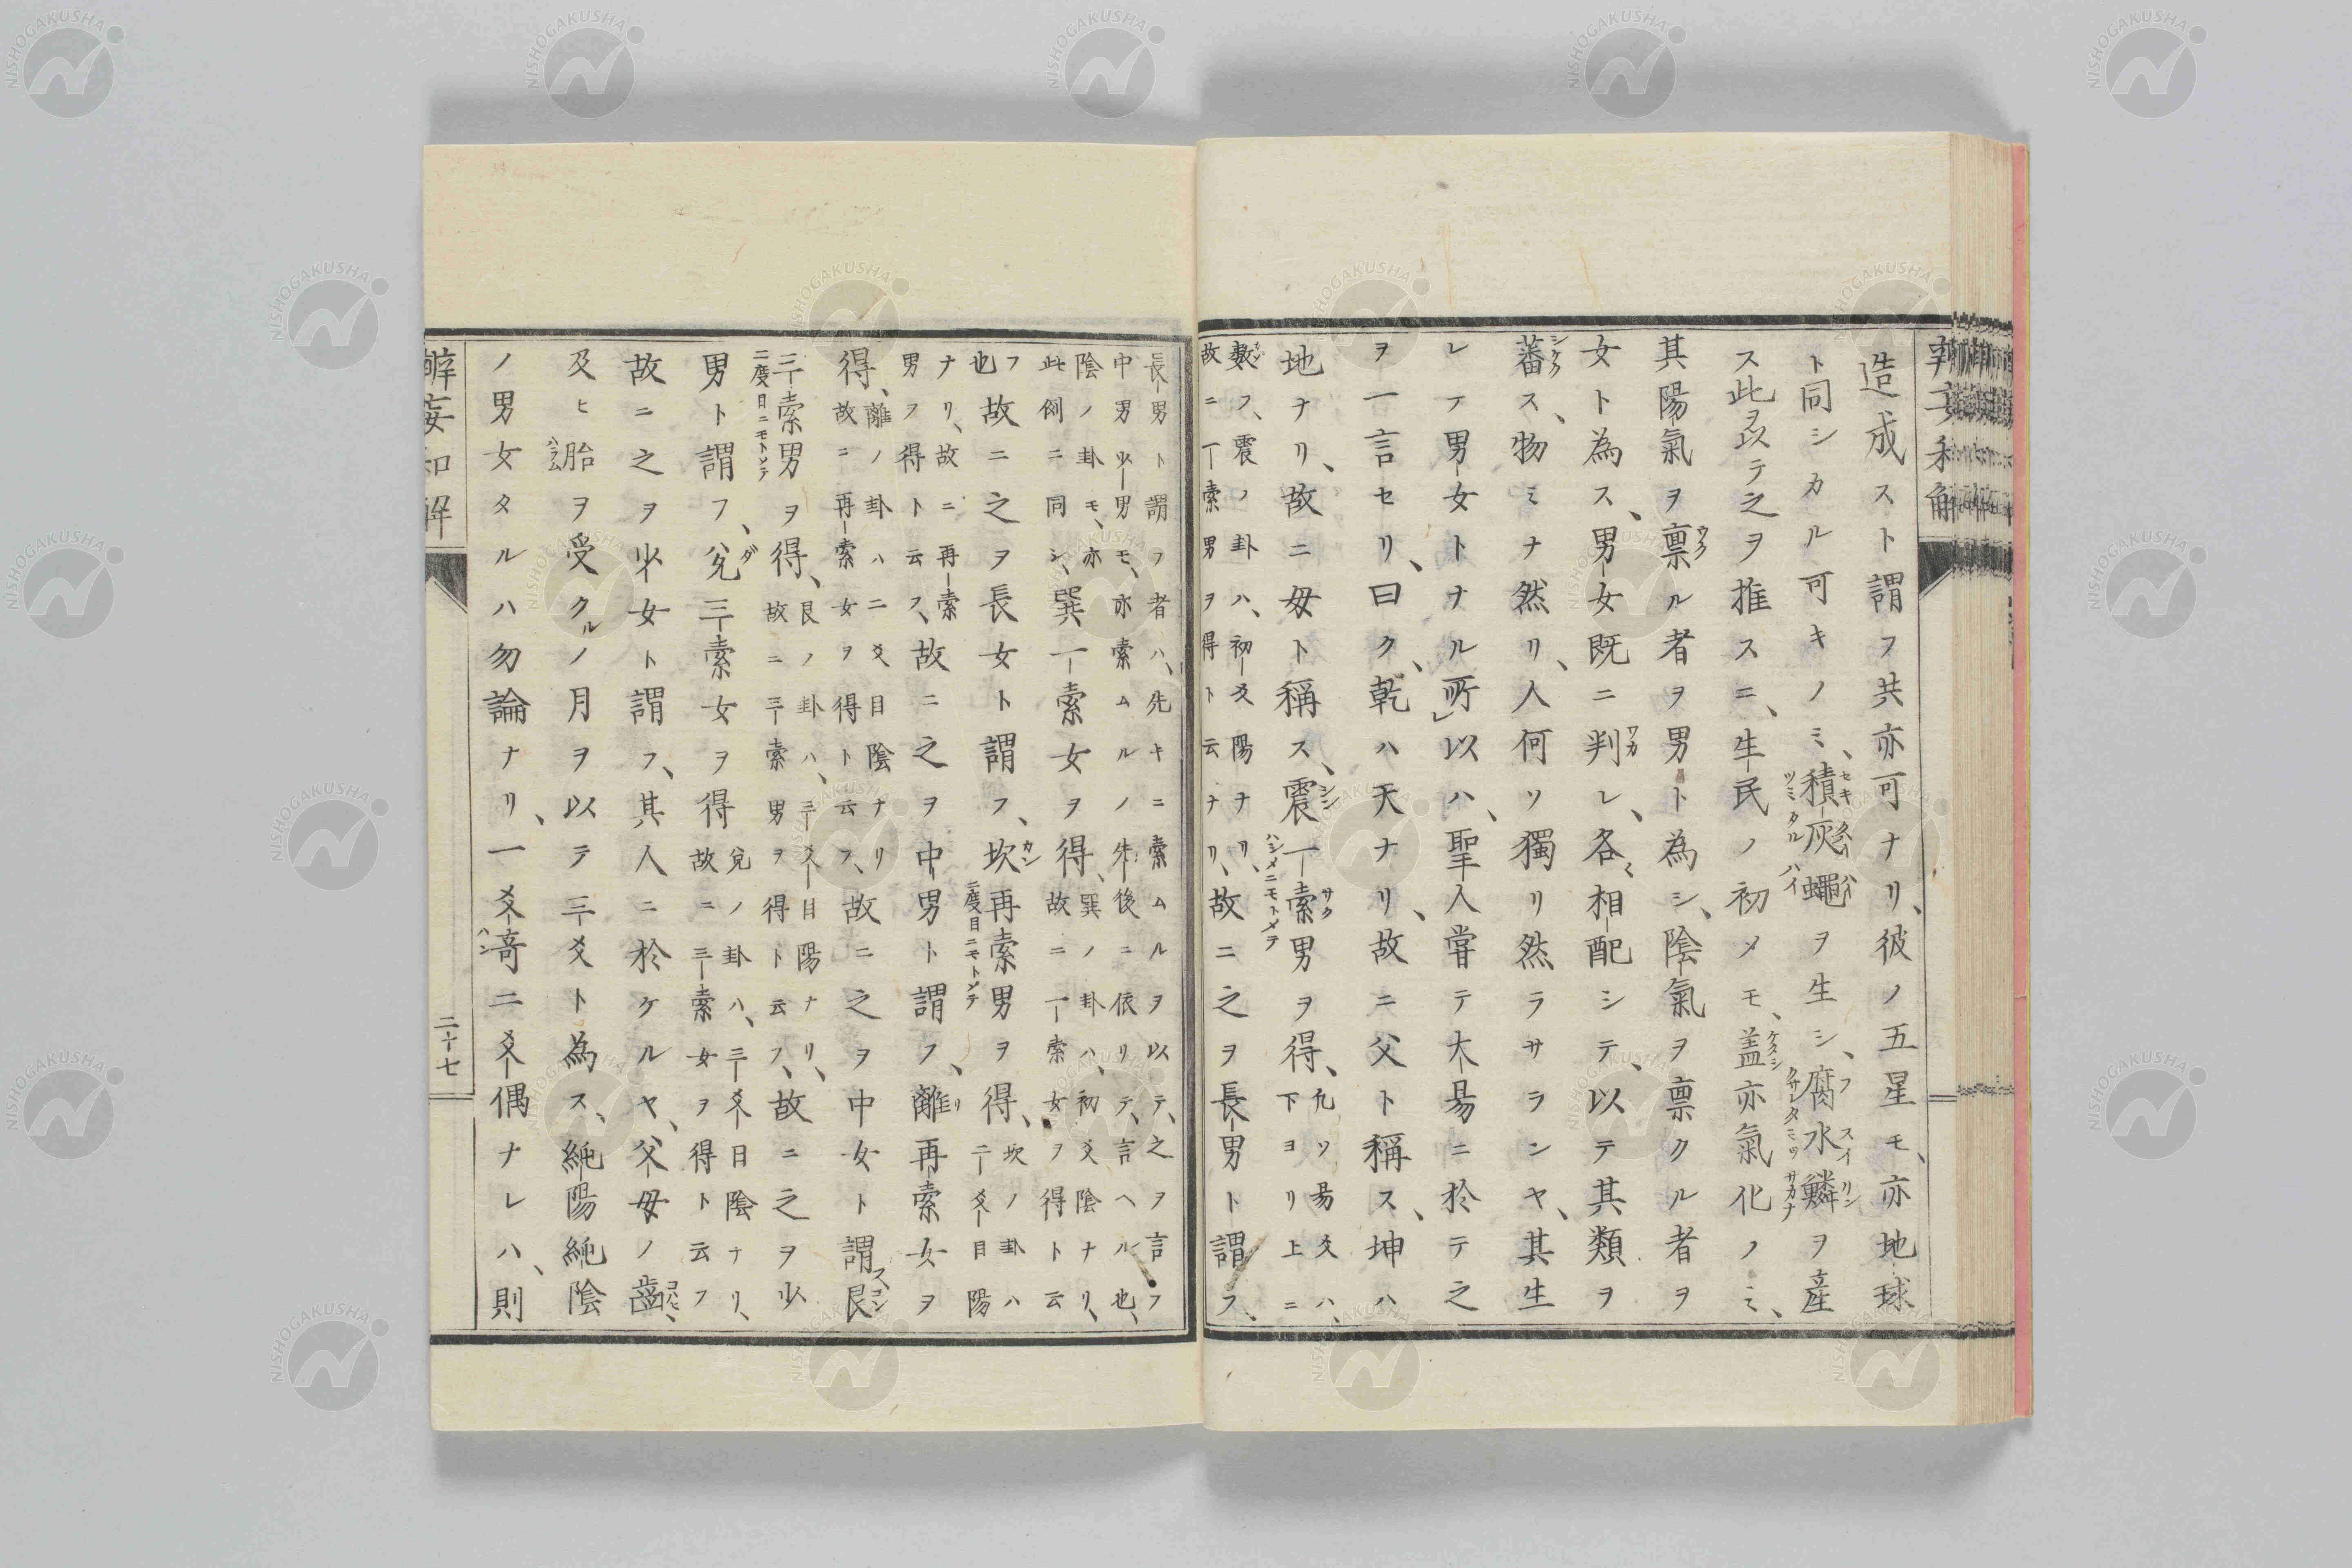 造成スト謂フ共亦可ナリ、彼ノ五星モ、亦地球
ト同シカル可キノミ、積灰蠅ヲ生シ、腐水鱗ヲ産
ス此ヲ以テ之ヲ推スニ、生民ノ初メモ、盖亦氣化ノミ、
其陽氣ヲ禀ル者ヲ男ト為シ、陰氣ヲ禀クル者ヲ
女ト為ス、男女既ニ判レ、各相配シテ、以テ其類ヲ
蕃ス、物ミナ然リ、人何ソ獨リ然ラサランヤ、其生
レテ男女トナル所以ハ、聖人甞テ大昜ニ於テ之
ヲ一言セリ、曰ク、乾ハ天ナリ、故ニ父ト稱ス、坤ハ
地ナリ、故ニ母ト稱ス、震一索男ヲ得、凡ソ昜爻ハ、
下ヨリ上ニ
數フ、震ノ卦ハ、初爻陽ナリ、
故ニ一索男ヲ得ト云ナリ、故ニ之ヲ長男ト謂フ、
長男ト謂フ者ハ、先キニ索ムルヲ以テ、之ヲ言フ
中男少男モ、亦索ムルノ先後ニ依リテ、言ヘル也、
陰ノ卦モ、亦
此例ニ同シ、巽一索女ヲ得、巽ノ卦ハ、初爻陰ナリ、
故ニ一索女ヲ得ト云
フ
也故ニ之ヲ長女ト謂フ、坎再索男ヲ得、坎ノ卦ハ
二爻目陽
ナリ、故ニ再索
男ヲ得ト云フ、故ニ之ヲ中男ト謂フ、離再索女ヲ
得、離ノ卦ハ二爻目陰ナリ
故ニ再索女ヲ得ト云フ、故ニ之ヲ中女ト謂フ艮
三索男ヲ得、艮ノ卦ハ、三爻目陽ナリ、
故ニ三索男ヲ得ト云フ、故ニ之ヲ少
男ト謂フ、兌三索女ヲ得兌ノ卦ハ、三爻目陰ナリ、
故ニ三索女ヲ得ト云フ
故ニ之ヲ少女ト謂フ、其人ニ於ケルヤ、父母ノ齒、
及ヒ胎ヲ受クルノ月ヲ以テ三爻ト為ス、純陽純陰
ノ男女タルハ勿論ナリ、一爻奇二爻偶ナレハ、則
辨妄和解
二十七